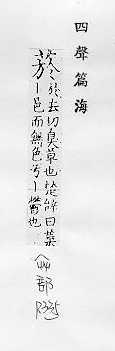 四聲篇海
於去切臭草也楚辭曰葉
丨邑而無色兮丨鬱也
艸部